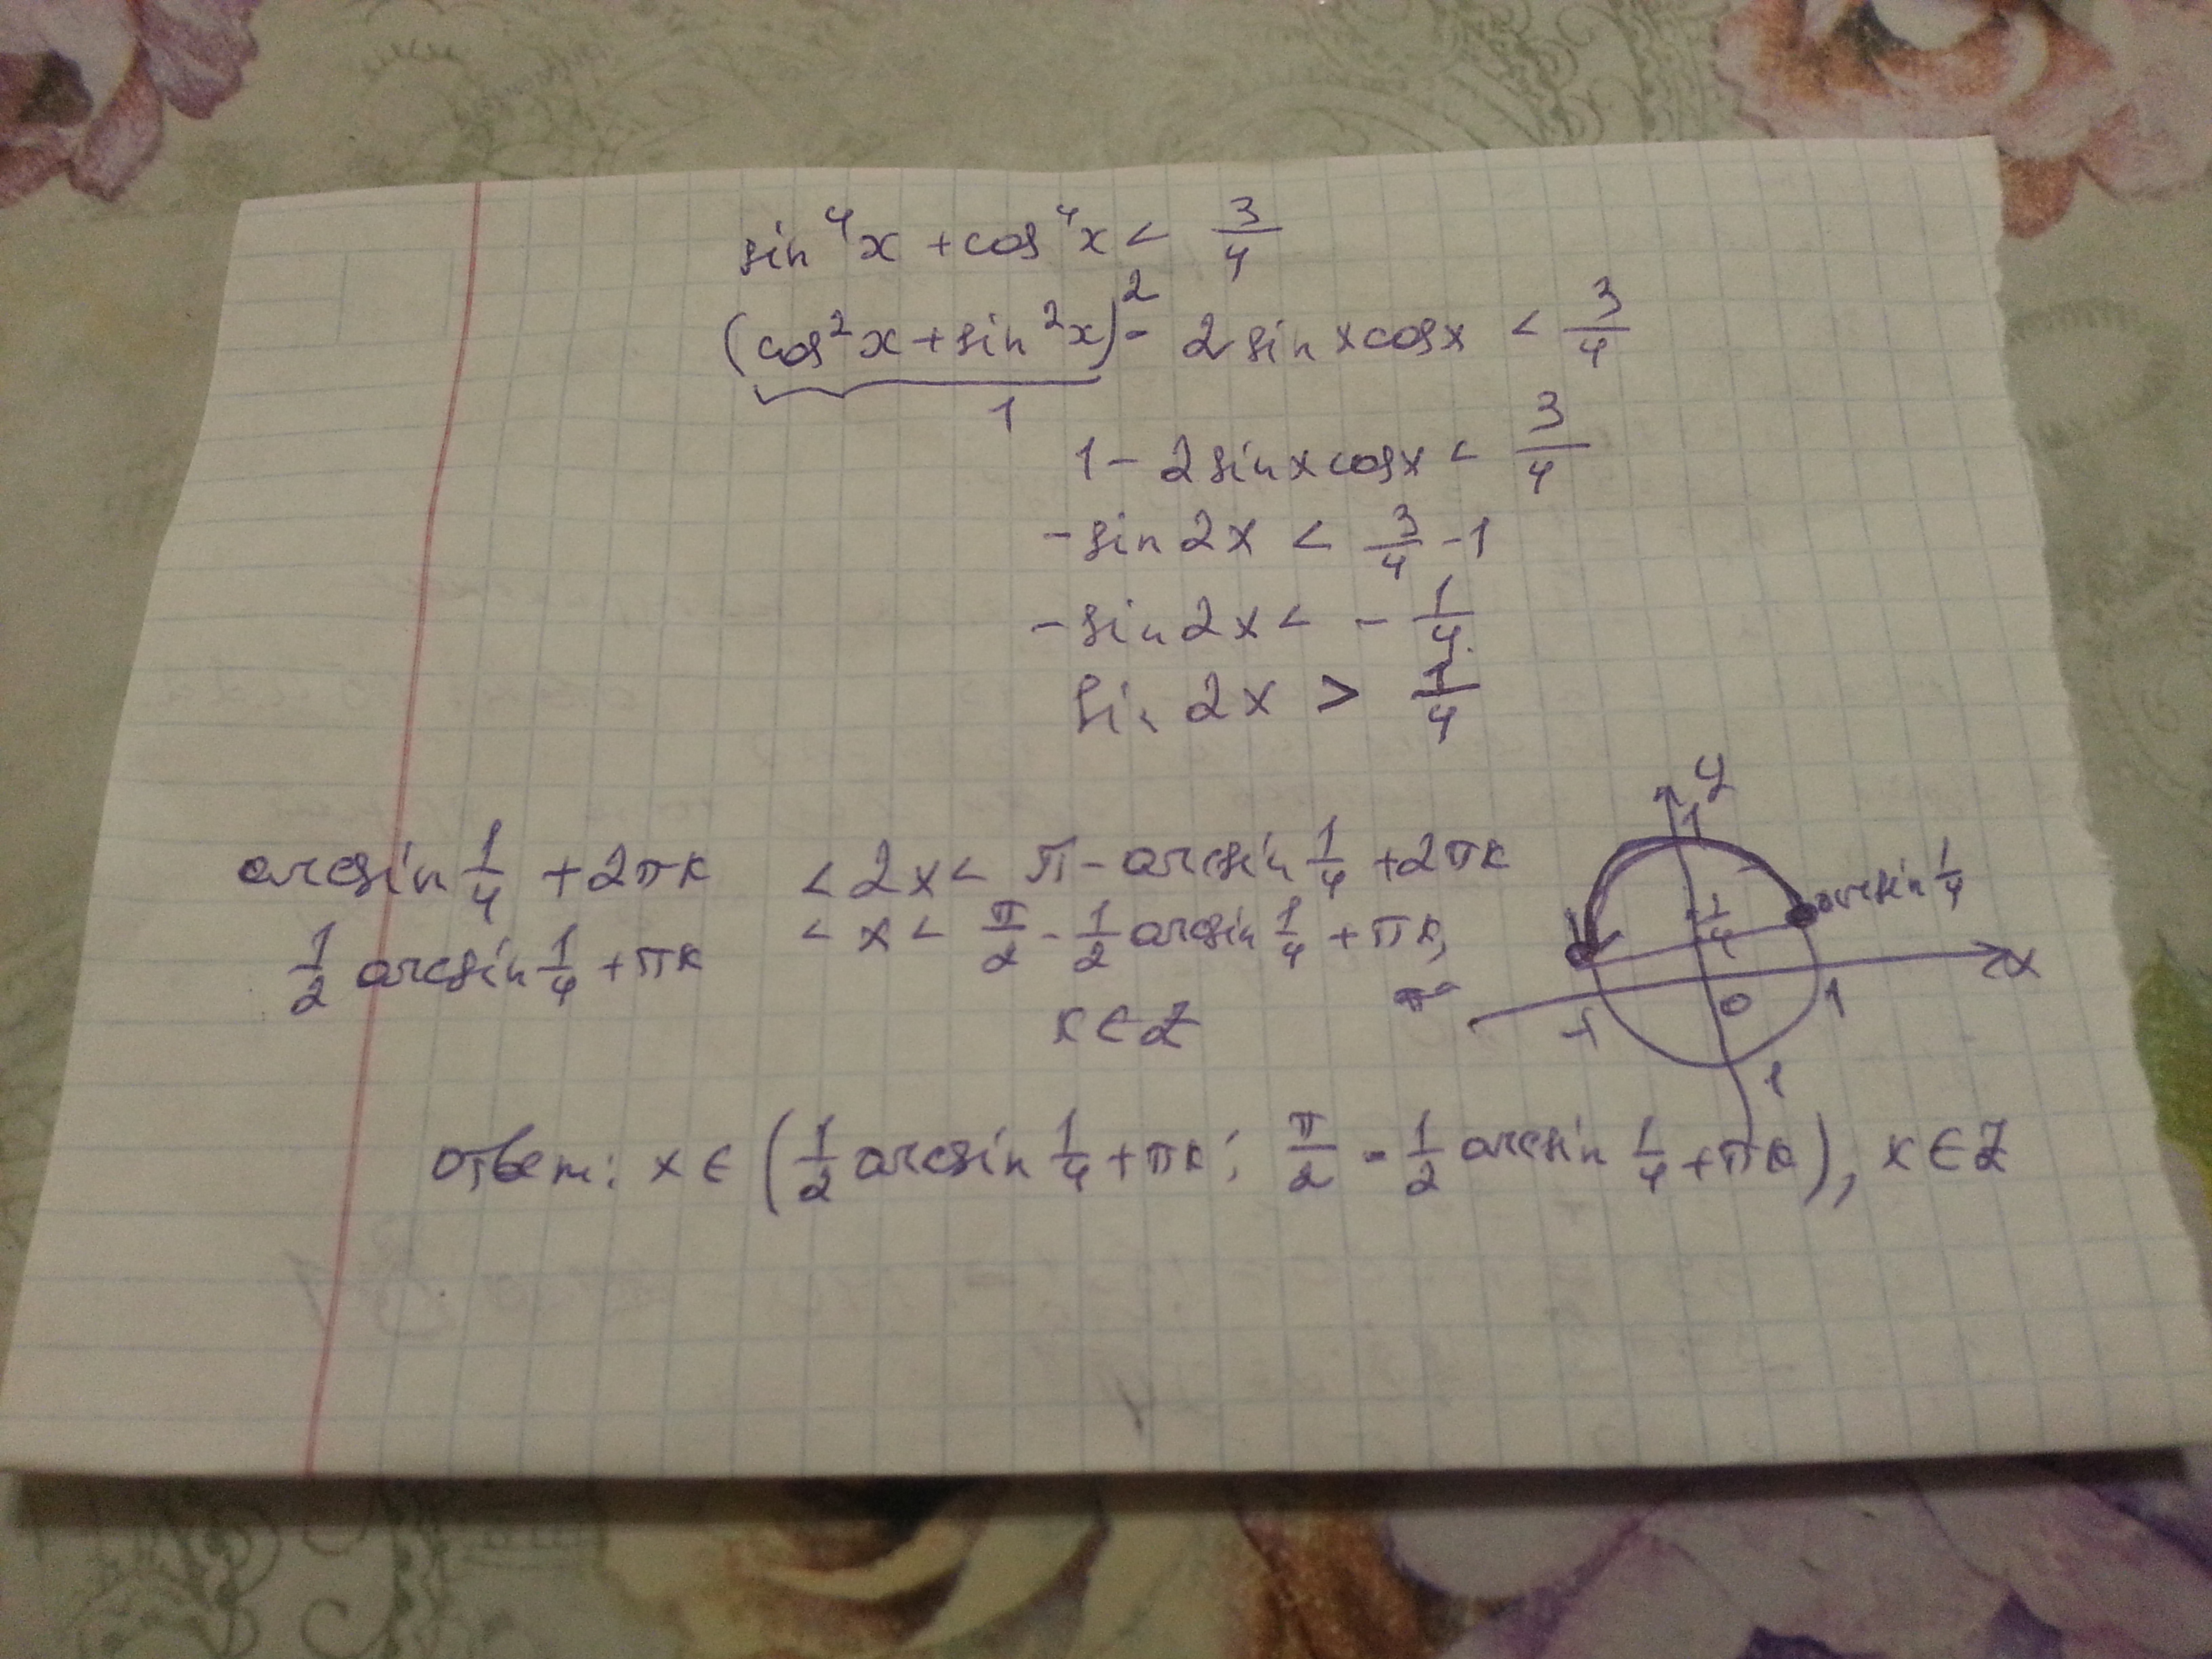 sin⁴x + cos⁴x < 3/4
(cos²x + sin²x)² - 2 sin x cos x < 3/4
1
1 - 2 sin x cos x < 3/4
- sin 2x < 3/4 - 1
- sin 2x < - 1/4
sin 2x > 1/4
arcsin 1/4 + 2πk < 2x < π - arcsin 1/4 + 2πk
1/2 arcsin 1/4 + πk < x < π/2 - 1/2 arcsin 1/4 + πk,
k ∈ Z
y
1
arcsin 1/4
1/4
x
0
-1
1
1
ответ: x ∈ (1/2 arcsin 1/4 + πk; π/2 - 1/2 arcsin 1/4 + πk), k ∈ Z